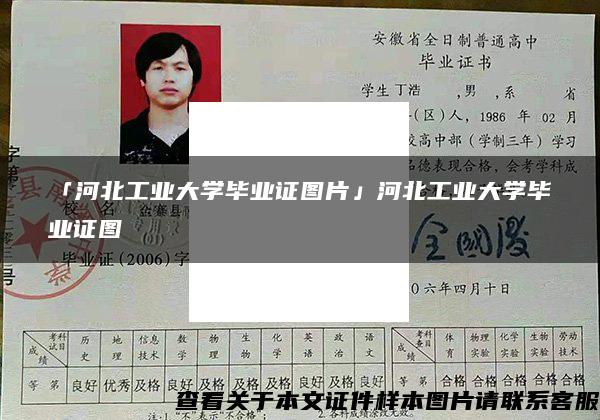 安徽省全日制普通高中
毕业证书
学生丁浩 ,男 ,系 省
(区)人, 1986 年 02 月
校高中部(学制三年)学习
德表现合格,会考学科成
「河北工业大学毕业证图片」河北工业大学毕
业证图
校 名 金寨县
毕业证(2006)字
六年四月十日
成绩 考试科目 历史 地理 信息技术 数学 物理 生物 化学 英语 政治 语文
等第 良好 优秀 及格 及格 及格 及格 及格 及格 良好 良好
成绩 考查科目 体育 物理实验 化学实验 生物实验 劳动技术
合格 合格 合格 合格 合格
查看关于本文证件样本图片请联系客服
注:1.“不”表示“不合格”;
2.各科成绩涂改无效。